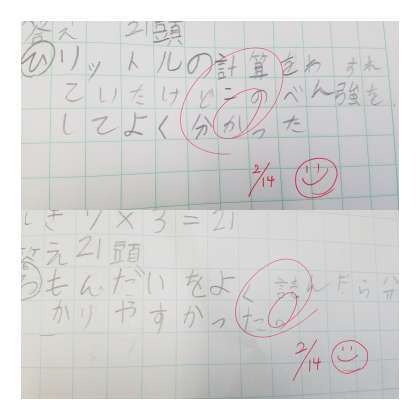 答え 21頭
ひリットルの計算をわすれ
ていたけどこのべん強を
してよく分かった
2/14
×3=21
答え21頭
もんだいをよく読んだら分
かりやすかった。
2/14